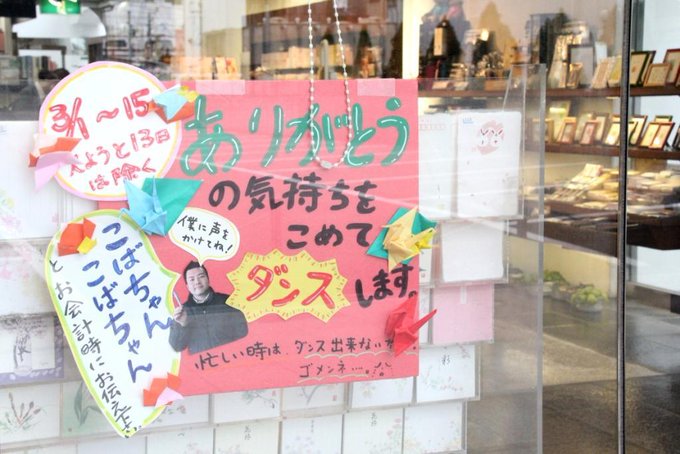 3/1～15
日ようと13日
は除く
ありがとう
の気持ちを
こめて
僕に声を
かけてね！
ダンス
します。
忙しい時は、ダンス出来ない
ゴメンネ…。
こばちゃん
こばちゃん
とお会計時にお伝え